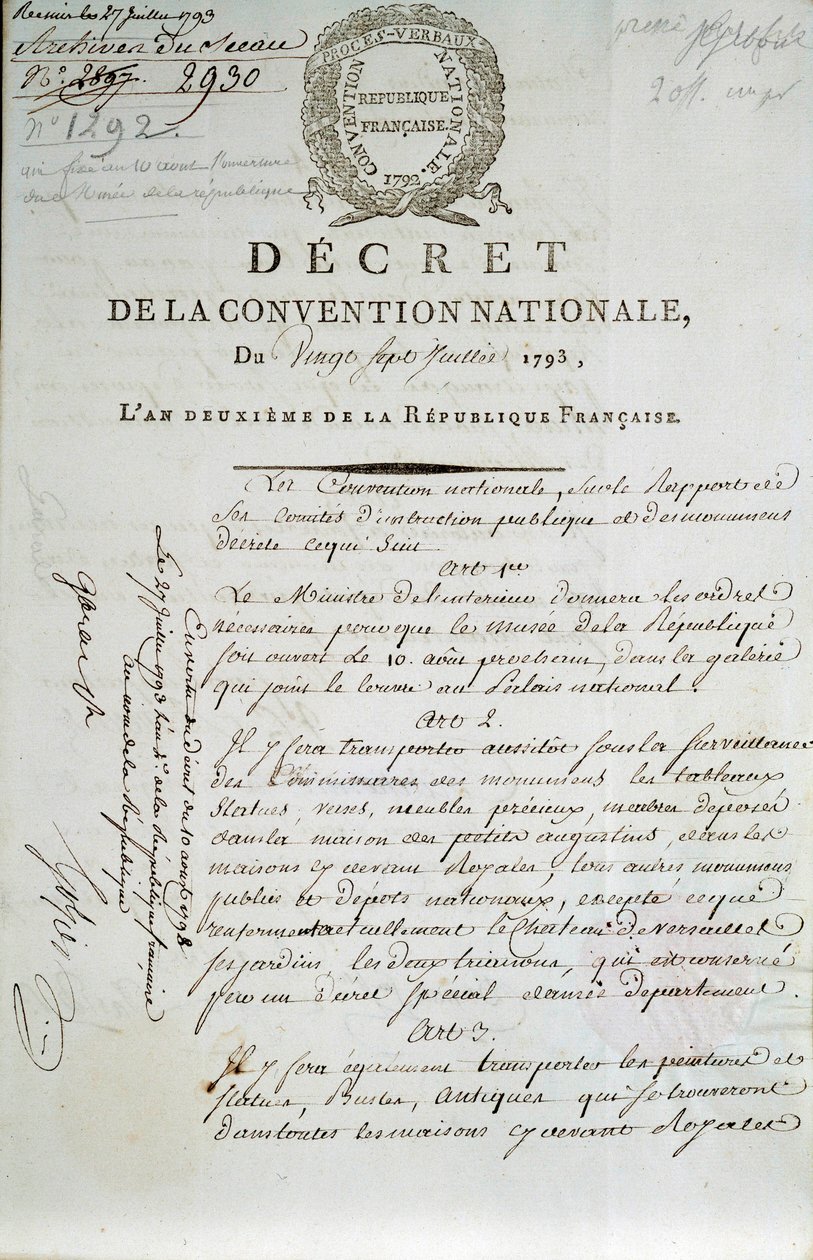 le 27 Juillet 1793
Archives du Sceau
N°. 2897. 2930
N° 1292.
qui fixe au 10 aout l'ouverture
du Musée de la république
PROCES-VERBAUX
CONVENTION NATIONALE.
REPUBLIQUE
FRANÇAISE.
1792
DÉCRET
DE LA CONVENTION NATIONALE,
Du Vingt Sept Juillet 1793,
L'AN DEUXIÈME DE LA RÉPUBLIQUE FRANÇAISE.
La Convention nationale, sur le Rapport de
Ses Comités d'instruction publique et des monumens
décrète ce qui Suit
Art 1er
Le Ministre de l'interieur donnera les ordres
nécessaires pour que le musée de la République
soit ouvert le 10. août prochain, dans la galerie
qui joint le louvre au Palais national.
Art 2.
Il y sera transporté aussitôt sous la surveillance
des Commissaires des monumens les tableaux
statues, vases, meubles précieux, marbres déposés
dans la maison des petits augustins, dans les
maisons cy devant Royales, tous autres monumens
publics et dépots nationaux, excepté ce que
renferment actuellement le Chateau de Versailles
ses jardins, les deux trianons, qui est conservé
par un décret spécial dans ce département.
Art 3.
Il y sera également transporté les peintures et
statues, Bustes, antiques qui se trouveront
dans toutes les maisons cy devant Royales
En vertu du décret du 10 aoust 1792
Le 27 Juillet 1793 l'an 2e. de la République française
au nom de la République
Gohier